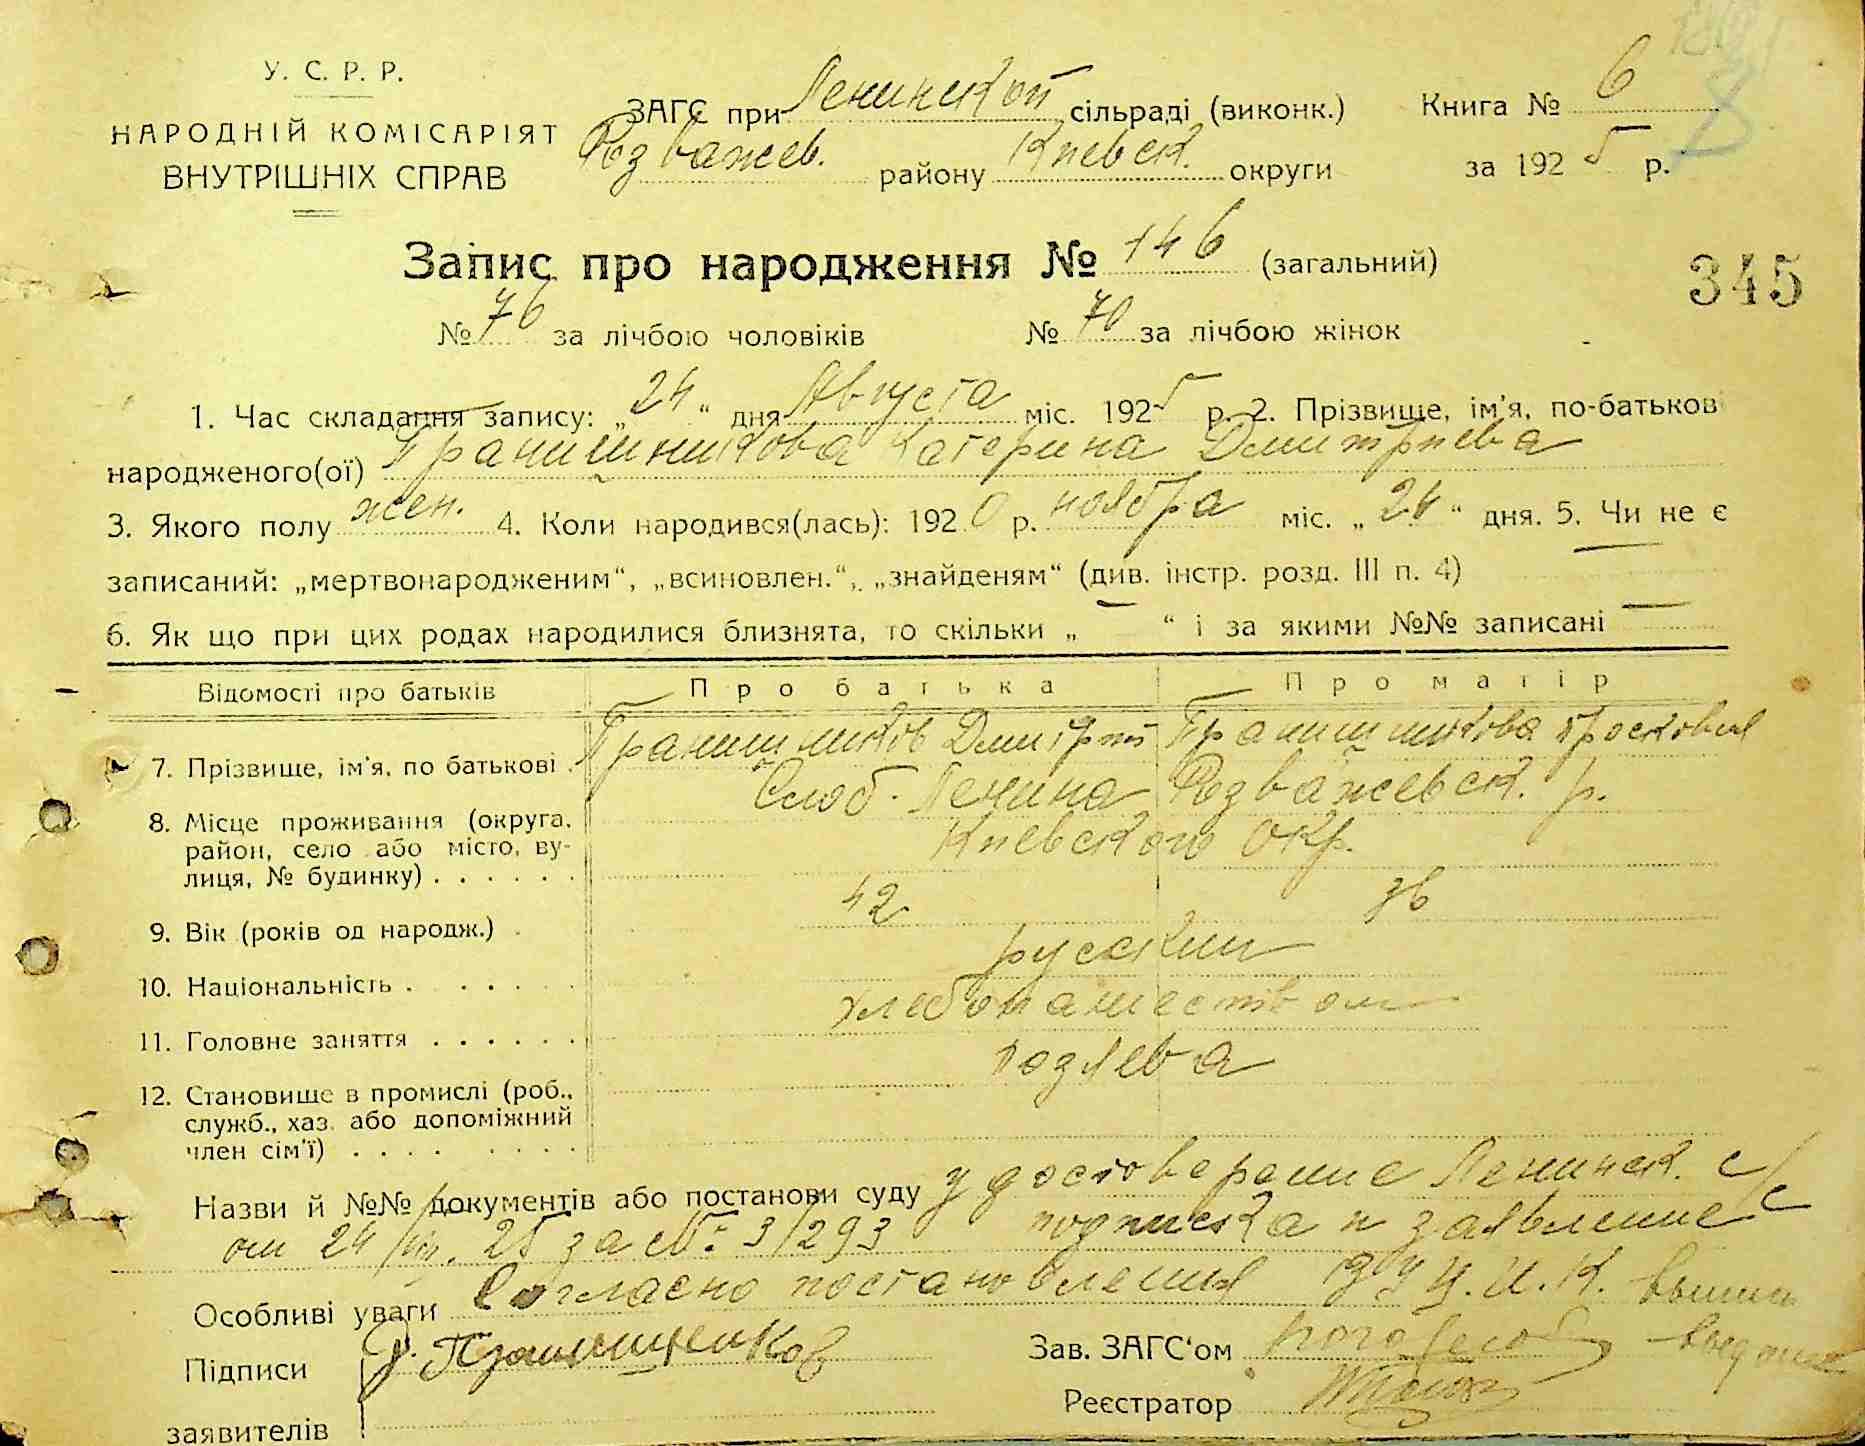 У. С. Р. Р.
НАРОДНІЙ КОМІСАРІЯТ
ВНУТРІШНІХ СПРАВ
ЗАГС при Ленинской сільраді (виконк.) Книга № 6
Розважев. району Киевск. округи за 1925 р.
Запис про народження № 146 (загальний)
345
№ 76 за лічбою чоловіків № 70 за лічбою жінок
1. Час складання запису: „24“ дня Августа міс. 1925 р. 2. Прізвище, ім'я, по-батькові
народженого(ої) Гранишникова Катерина Дмитриева
3. Якого полу жен. 4. Коли народився(лась): 1920 р. ноября міс. „24“ дня. 5. Чи не є
записаний: „мертвонародженим“, „всиновлен.“, „знайденям“ (див. інстр. розд. III п. 4) —
6. Як що при цих родах народилися близнята, то скільки „—“ і за якими №№ записані —
Відомості про батьків Про батька Про матір
7. Прізвище, ім'я, по батькові Гранишников Дмитрий Гранишникова Просковия
8. Місце проживання (округа, район, село або місто, вулиця, № будинку) Слоб. Ленина Розважевск. р.
Киевского окр.
9. Вік (років од народж.) 42 36
10. Національність русский
11. Головне заняття хлебопашеством
12. Становище в промислі (роб., служб., хаз. або допоміжний член сім'ї) хозяева
Назви й №№ документів або постанови суду удостоверение Ленинск. с/с
от 24/VIII. 25 за № 3/293 подписка и заявление
Особливі уваги Согласно постановления ВУЦ.И.К.
Підписи
заявителів
Зав. ЗАГС'ом
Реєстратор